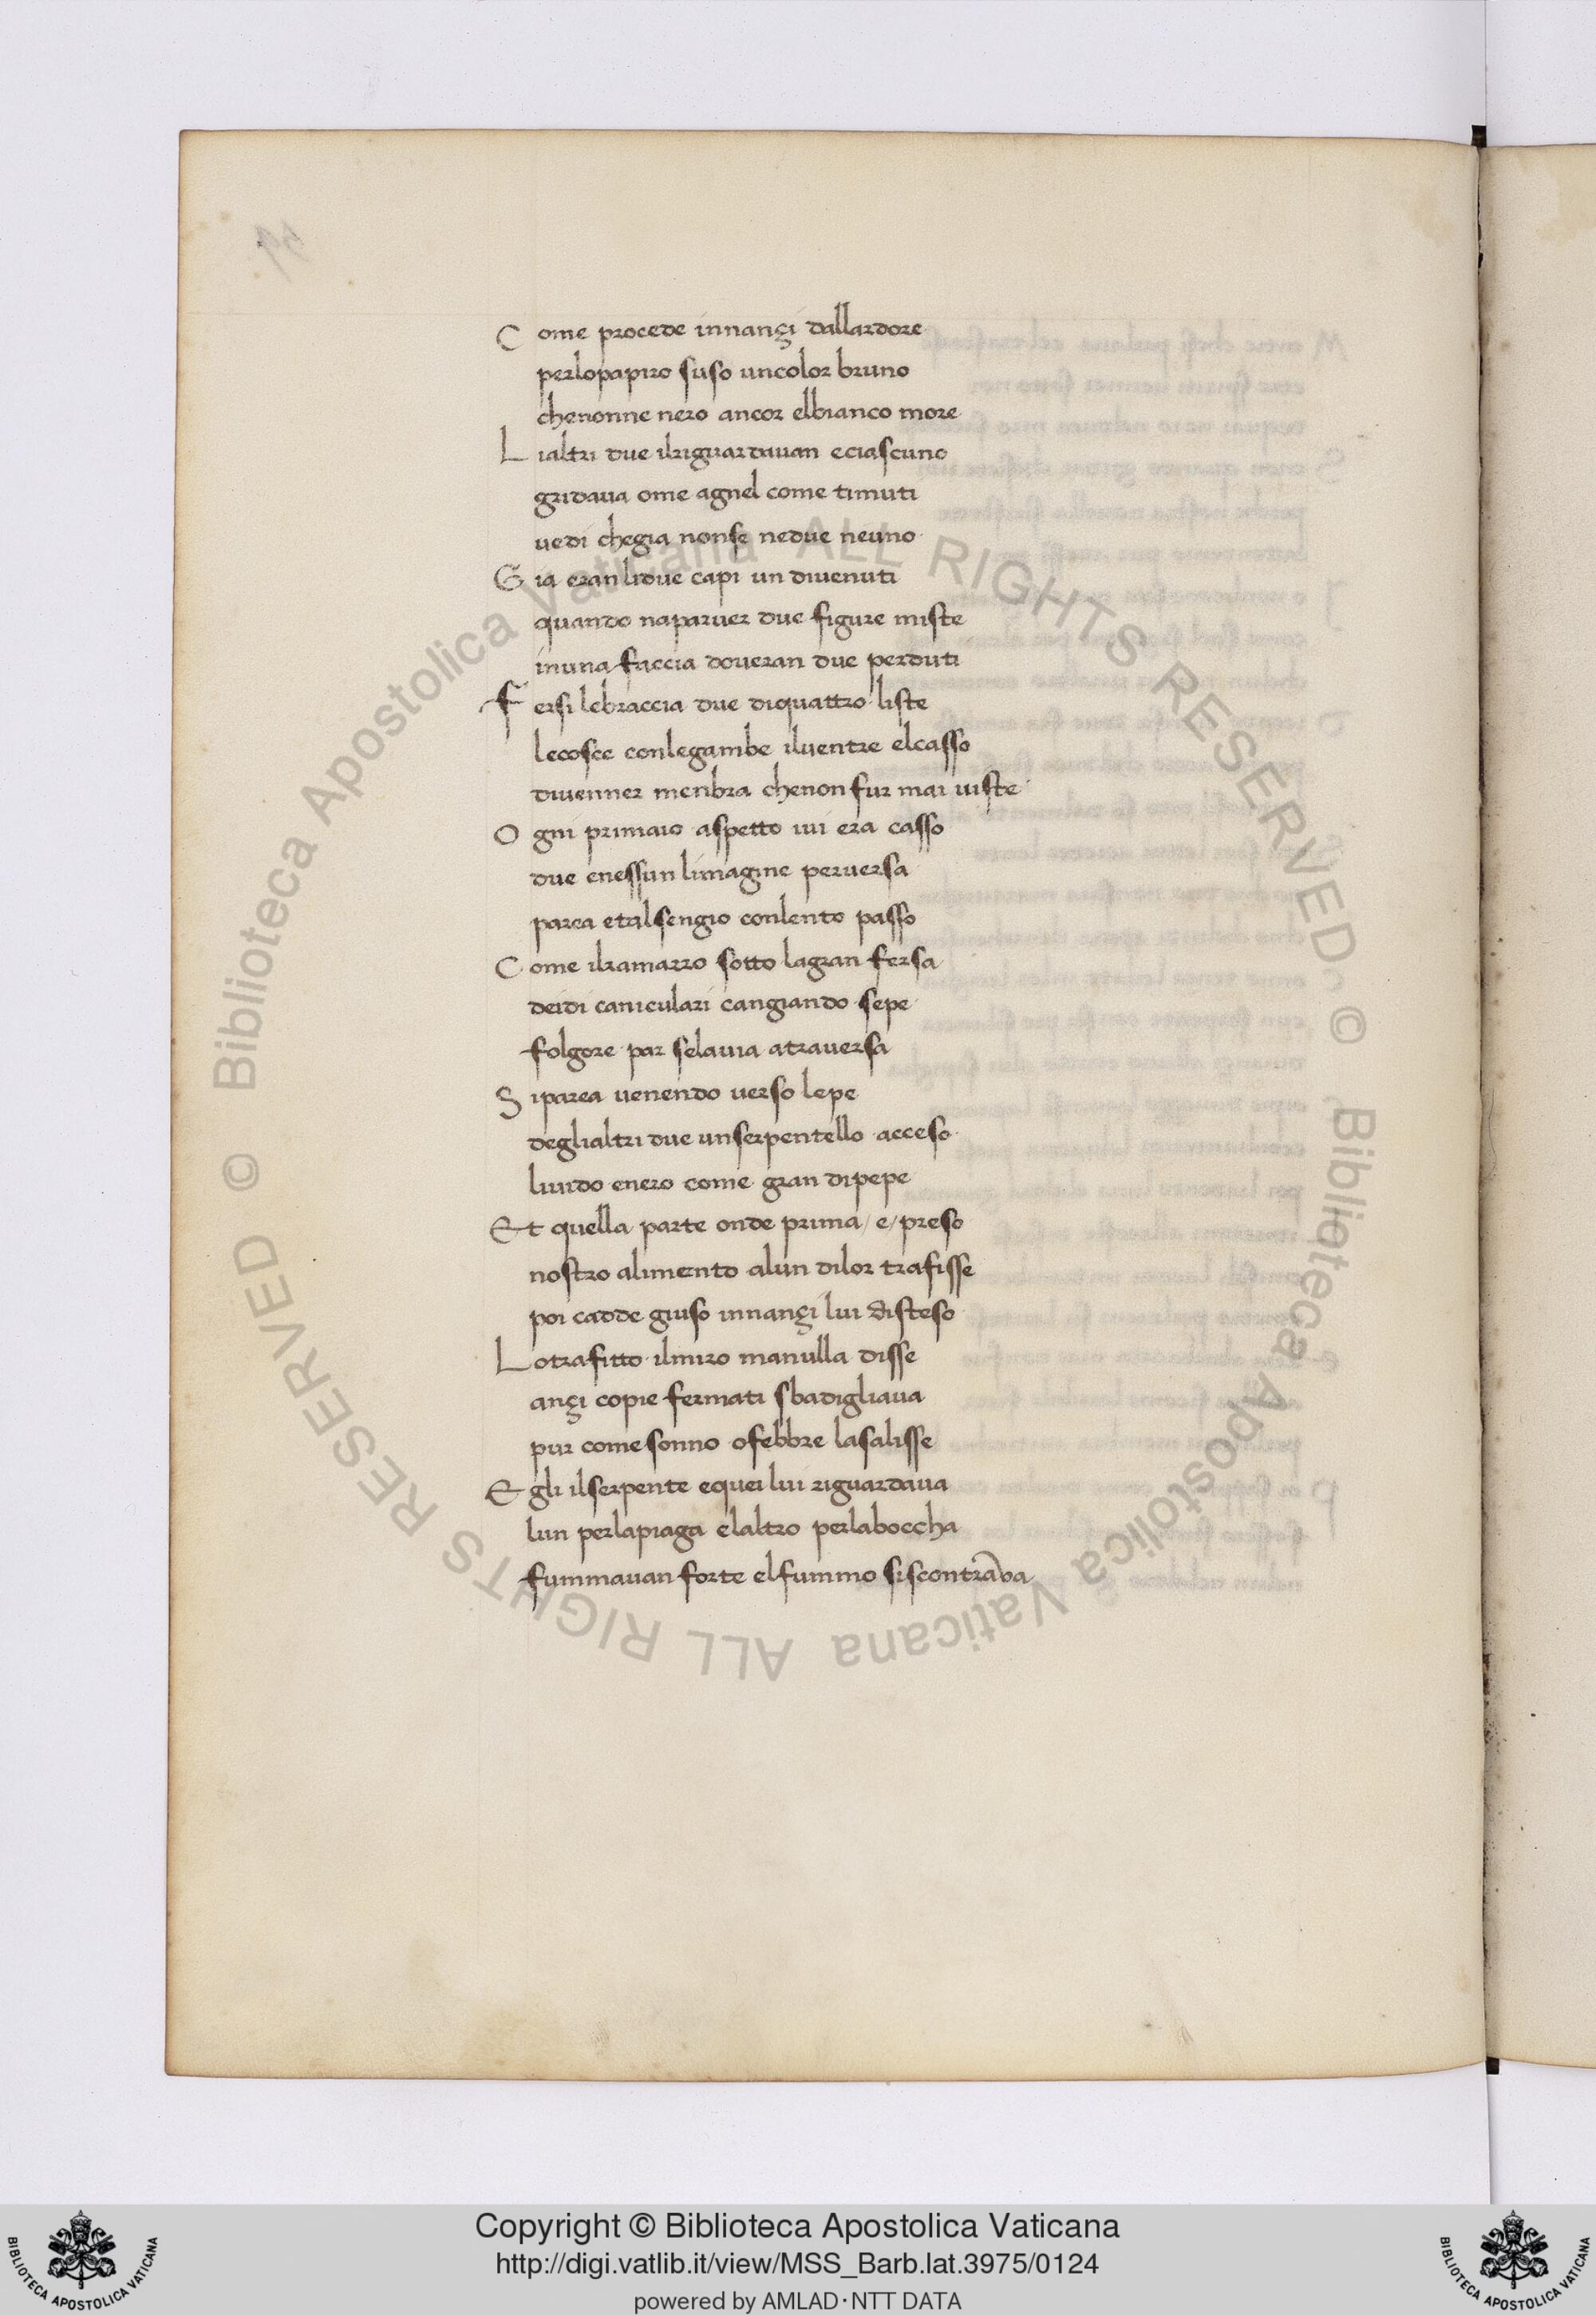 Come procede innançi dallardore
perlopapiro suso uncolor bruno
chenonne nero ancor elbianco more
Lialtri due ilriguardauan eciascuno
gridaua ome agnel come timuti
uedi chegia nonse nedue neuno
Gia eran lidue capi un diuenuti
quando naparuer due figure miste
inuna faccia doueran due perduti
Fersi lebraccia due diquattro liste
lecosce conlegambe iluentre elcasso
diuenner menbra chenon fur mai uiste
Ogni primaio aspetto iui era casso
due enessun limagine peruersa
parea etalsengio conlento passo
Come ilramarro sotto lagran fersa
deidi caniculari cangiando sepe
folgore par selauia atrauersa
Siparea uenendo uerso lepe
deglialtri due unserpentello acceso
liuido enero come gran dipepe
Et quella parte onde prima / e / preso
nostro alimento alun dilor trafisse
poi cadde giuso innançi lui disteso
Lotrafitto ilmiro manulla disse
ançi copie fermati sbadigliaua
pur come sonno ofebbre lasalisse
Egli ilserpente equei lui riguardaua
lun perlapiaga elaltro perlaboccha
fummauan forte elfummo siscontraua
© Biblioteca Apostolica Vaticana ALL RIGHTS RESERVED © Biblioteca Apostolica Vaticana ALL RIGHTS RESERVED
BIBLIOTECA APOSTOLICA VATICANA
Copyright © Biblioteca Apostolica Vaticana
http://digi.vatlib.it/view/MSS_Barb.lat.3975/0124
powered by AMLAD·NTT DATA
BIBLIOTECA APOSTOLICA VATICANA